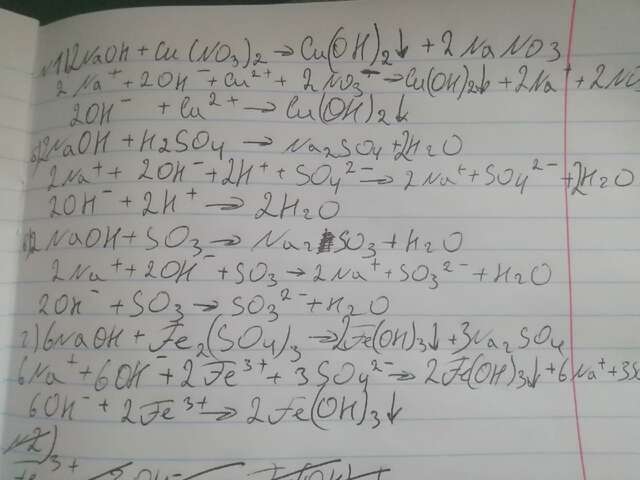 №1)2NaOH + Cu(NO3)2 → Cu(OH)2↓ + 2NaNO3
2Na⁺ + 2OH⁻ + Cu²⁺ + 2NO3⁻ → Cu(OH)2↓ + 2Na⁺ + 2NO3
2OH⁻ + Cu²⁺ → Cu(OH)2↓
б)2NaOH + H2SO4 → Na2SO4 + 2H2O
2Na⁺ + 2OH⁻ + 2H⁺ + SO4²⁻ → 2Na⁺ + SO4²⁻ + 2H2O
2OH⁻ + 2H⁺ → 2H2O
в)2NaOH + SO3 → Na2SO3 + H2O
2Na⁺ + 2OH⁻ + SO3 → 2Na⁺ + SO3²⁻ + H2O
2OH⁻ + SO3 → SO3²⁻ + H2O
г)6NaOH + Fe2(SO4)3 → 2Fe(OH)3↓ + 3Na2SO4
6Na⁺ + 6OH⁻ + 2Fe³⁺ + 3SO4²⁻ → 2Fe(OH)3↓ + 6Na⁺ + 3S
6OH⁻ + 2Fe³⁺ → 2Fe(OH)3↓
№2)